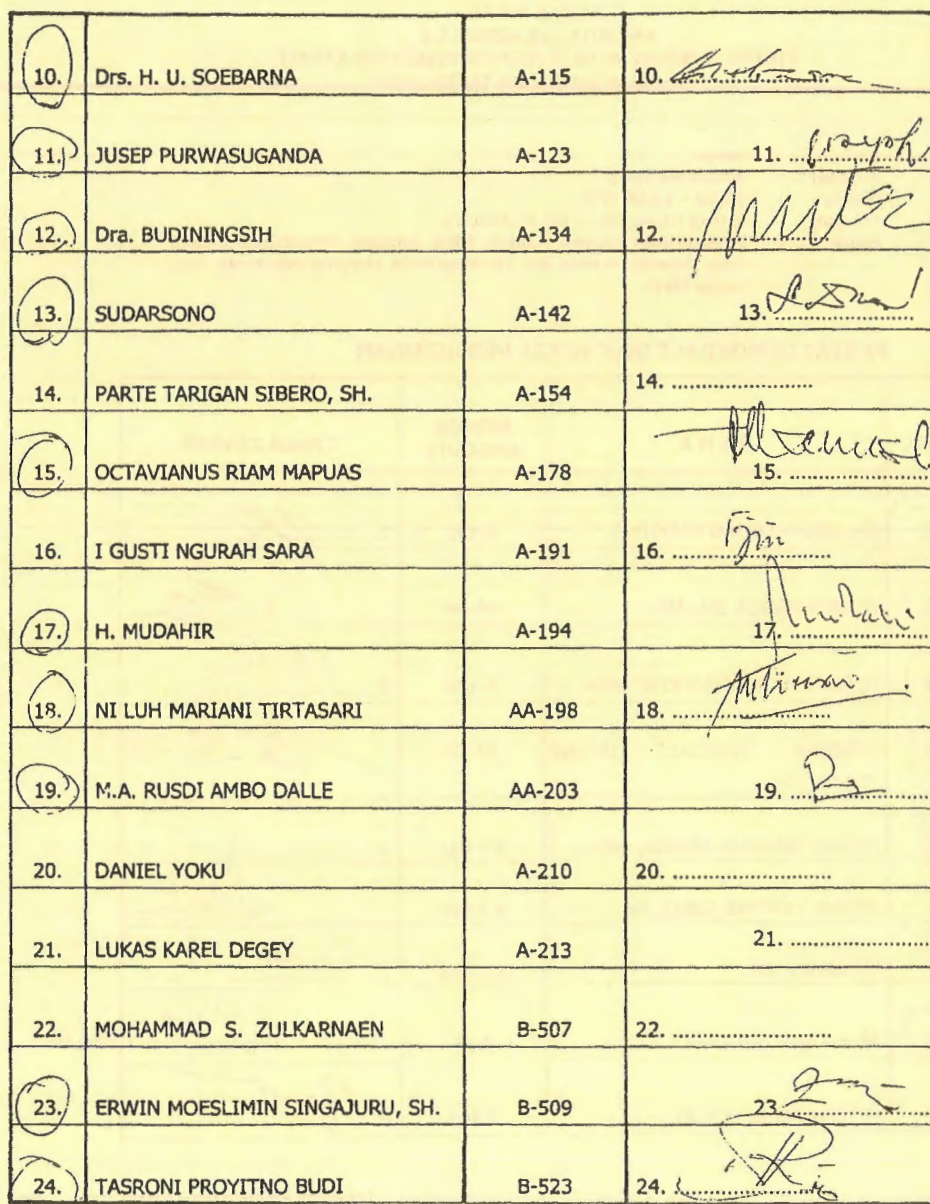 10. Drs. H. U. SOEBARNA A-115 10. ....................
11. JUSEP PURWASUGANDA A-123 11. ....................
12. Dra. BUDININGSIH A-134 12. ....................
13. SUDARSONO A-142 13. ....................
14. PARTE TARIGAN SIBERO, SH. A-154 14. ....................
15. OCTAVIANUS RIAM MAPUAS A-178 15. ....................
16. I GUSTI NGURAH SARA A-191 16. ....................
17. H. MUDAHIR A-194 17. ....................
18. NI LUH MARIANI TIRTASARI AA-198 18. ....................
19. M.A. RUSDI AMBO DALLE AA-203 19. ....................
20. DANIEL YOKU A-210 20. ....................
21. LUKAS KAREL DEGEY A-213 21. ....................
22. MOHAMMAD S. ZULKARNAEN B-507 22. ....................
23. ERWIN MOESLIMIN SINGAJURU, SH. B-509 23. ....................
24. TASRONI PROYITNO BUDI B-523 24. ....................